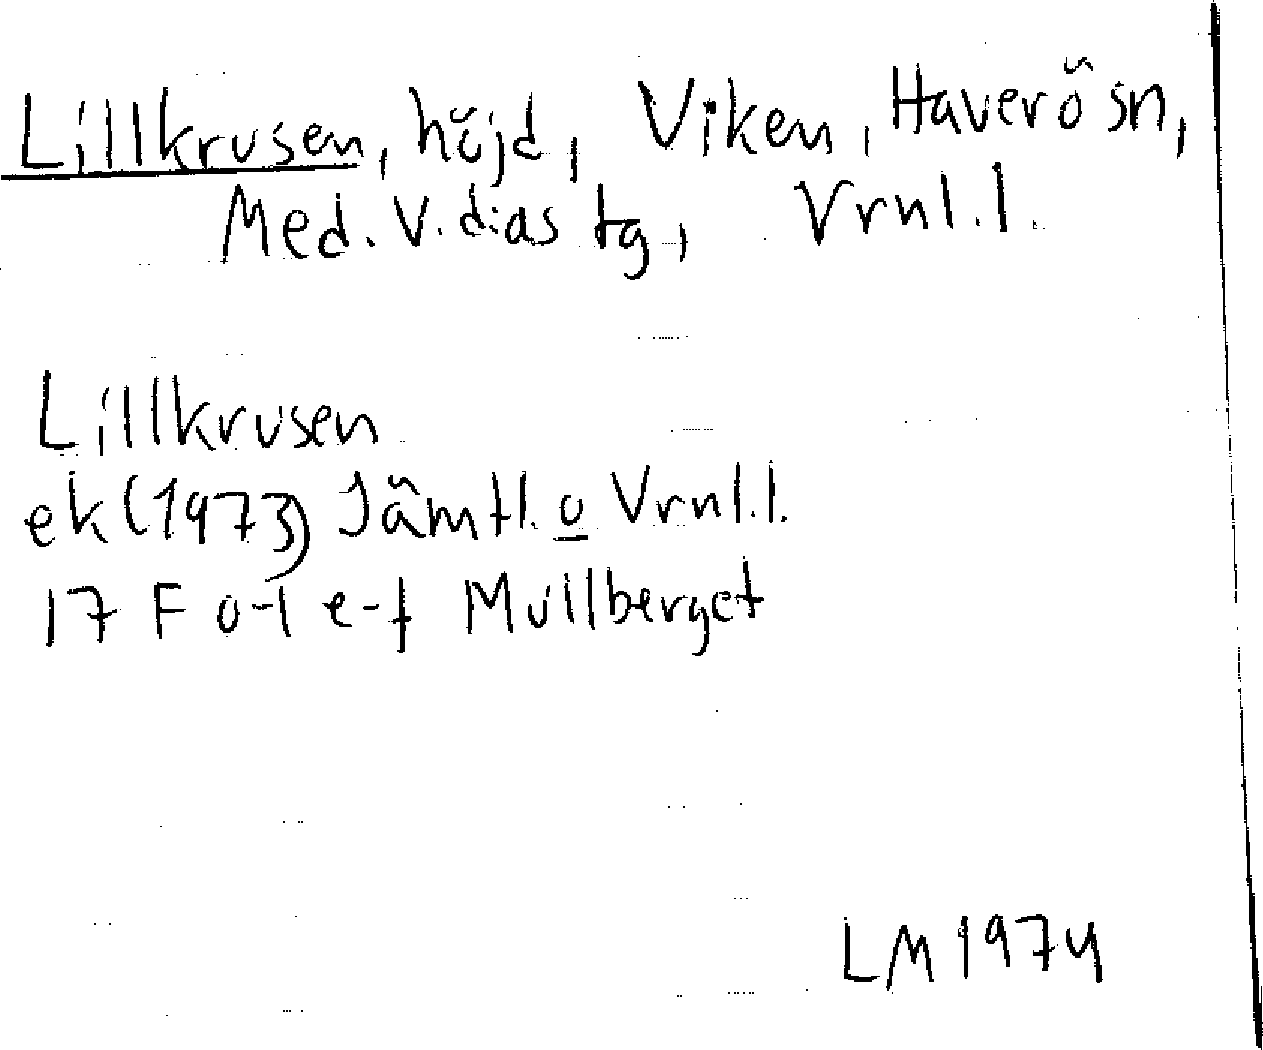 Lillkrusen, höjd, Viken, Haverö sn,
Med. V. dias tg, Vrnl.l.
Lillkrusen
ek (1973) Jämtl. o Vrnl.l.
17 F o-l e-f Mullberget
LM 1974